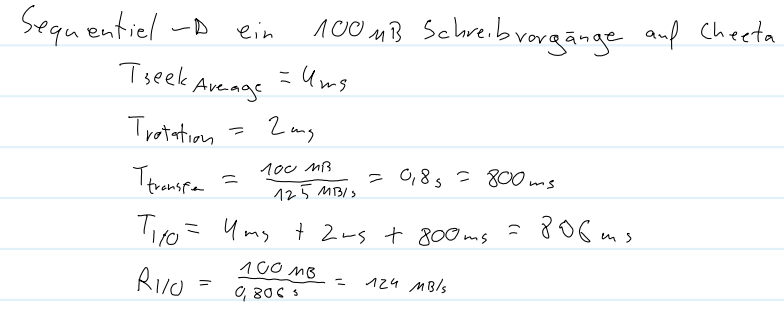 Sequentiel → ein 100 MB Schreibvorgänge auf Cheeta
T seek Average = 4 ms
T rotation = 2 ms
T transfer = 100 MB / 125 MB/s = 0,8 s = 800 ms
T I/O = 4 ms + 2 ms + 800 ms = 806 ms
R I/O = 100 MB / 0,806 s = 124 MB/s